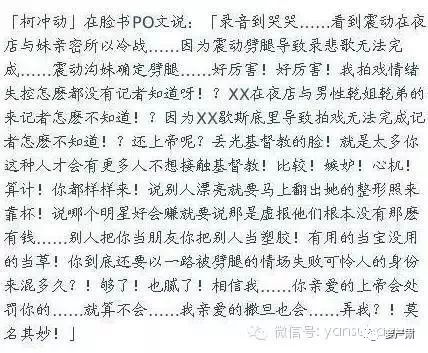 「柯冲动」在脸书PO文说：「录音到哭哭……看到震动在夜
店与妹亲密所以冷战……因为震动劈腿导致录悲歌无法完
成……震动沟妹确定劈腿……好厉害！好厉害！我拍戏情绪
失控怎麽都没有记者知道呀！？XX在夜店与男性乾姐乾弟的
来记者怎麽不知道！？因为XX歇斯底里导致拍戏无法完成记
者怎麽不知道！？还上帝呢？丢光基督教的脸！就是太多你
这种人才会有更多人不想接触基督教！比较！嫉妒！心机！
算计！你都样样来！说别人漂亮就要马上翻出她的整形照来
靠杯！说哪个明星好会赚就要说那是虚报他们根本没有那麽
有钱……别人把你当朋友你把别人当塑胶！有用的当宝没用
的当草！你到底还要以一路被劈腿的情场失败可怜人的身份
来混多久？！够了！也腻了！相信我……你亲爱的上帝会处
罚你的……就算不会……我亲爱的撒旦也会……弄我？！莫
名其妙！」
微信号: yansu
严肃